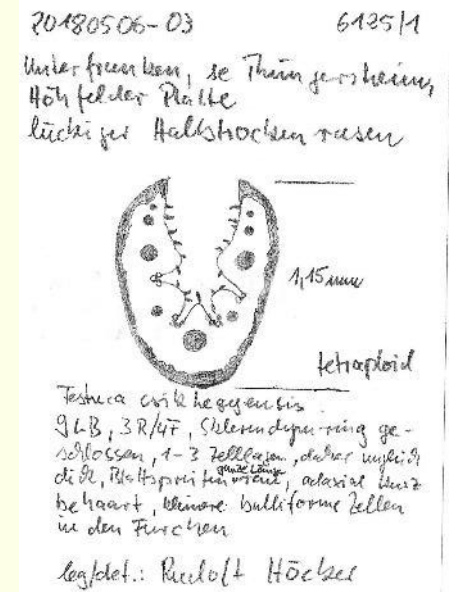 20180506-03 6125/1
Unterfranken, se Thüngersheim,
Höhfelder Platte
lückiger Halbtrockenrasen
1,15 mm
tetraploid
Festuca csikhegyensis
9 LB, 3R/4F, Sklerenchymring ge-
schlossen, 1-3 Zelllagen, daher ungleich
dick, Blattspreiten ganze Länge, adaxial kurz
behaart, kleinere bulliforme Zellen
in den Furchen
leg/det.: Rudolf Höcker